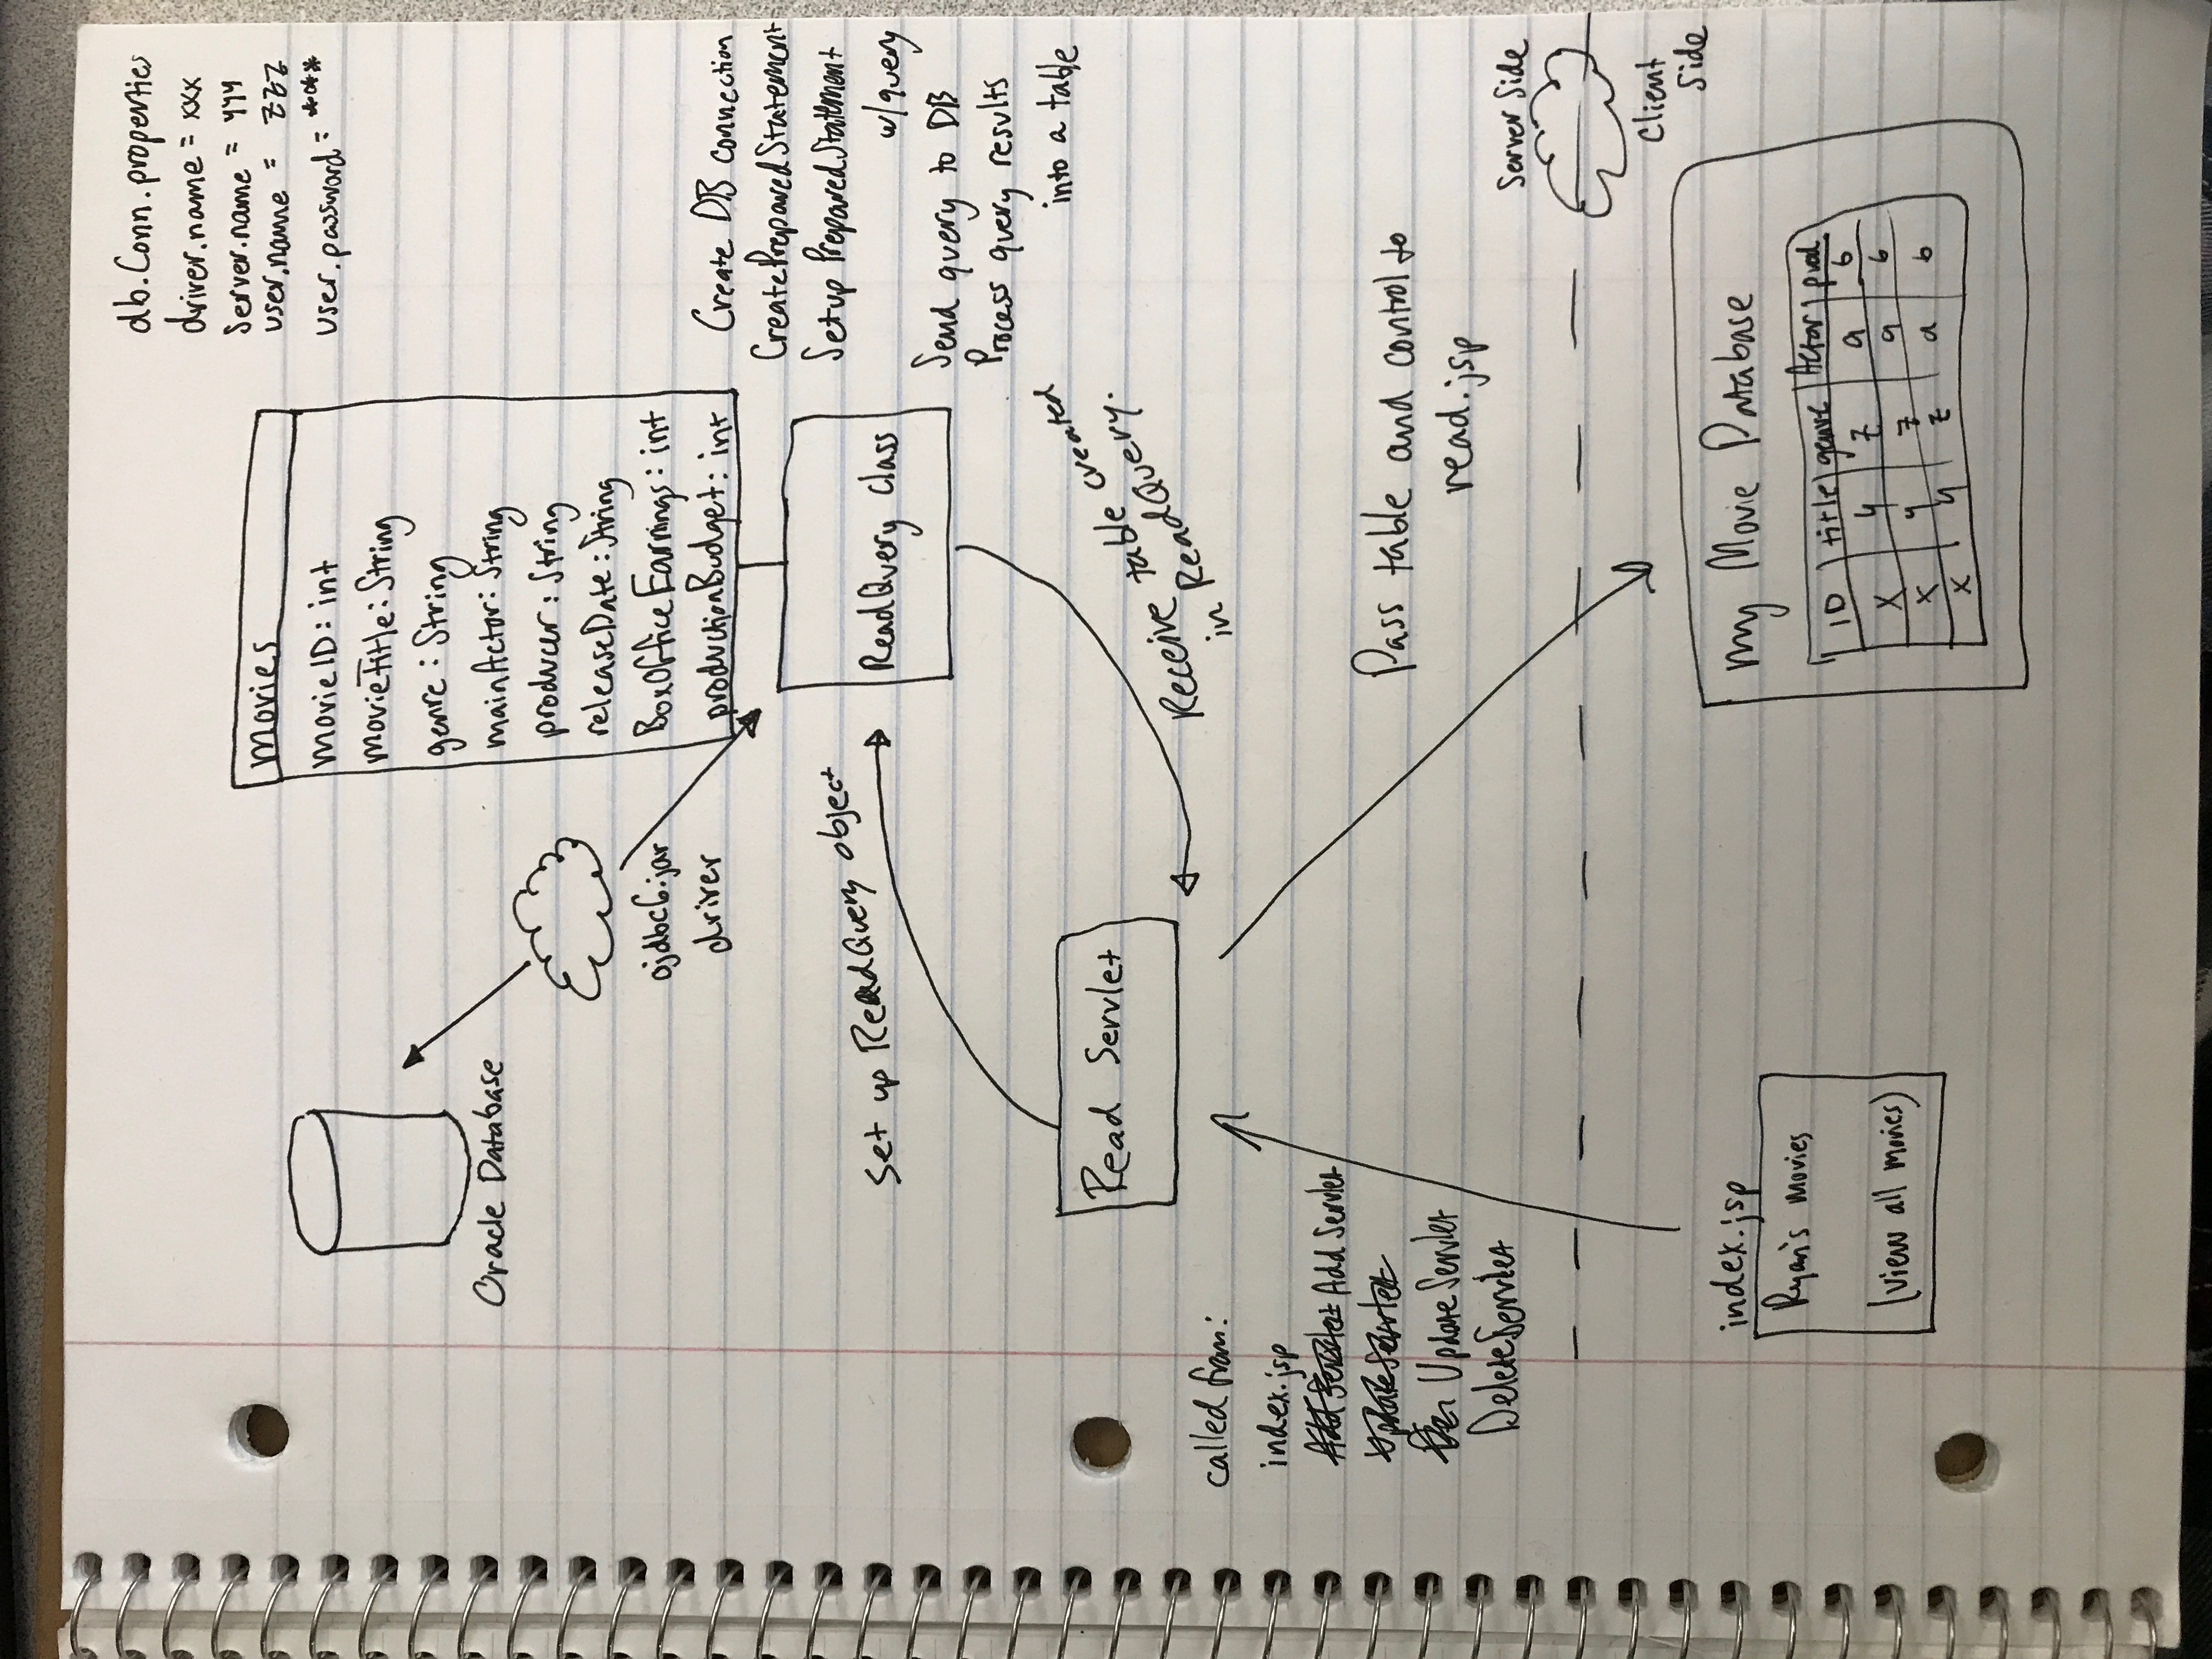 db.Conn.properties
driver.name = xxx
Server.name = yyy
user.name = zzz
user.password = ****
movies
movieID: int
movieTitle: String
genre: String
mainActor: String
producer: String
releaseDate: String
BoxOfficeEarnings: int
productionBudget: int
Oracle Database
ojdbc6.jar
driver
Create DB connection
CreatePreparedStatement
Setup PreparedStatement
w/query
Send query to DB
Process query results
into a table
Set up ReadQuery object
ReadQuery Class
Read Servlet
Receive table created
in ReadQuery.
called from:
index.jsp
Add Servlet Add Servlet
UpdateServlet
Update Servlet
DeleteServlet
Pass table and control to
read.jsp
Server Side
Client
Side
index.jsp
Ryan's Movies
(view all movies)
My Movie Database
ID title genre Actor prod
x y z a b
x y z a b
x y z a b